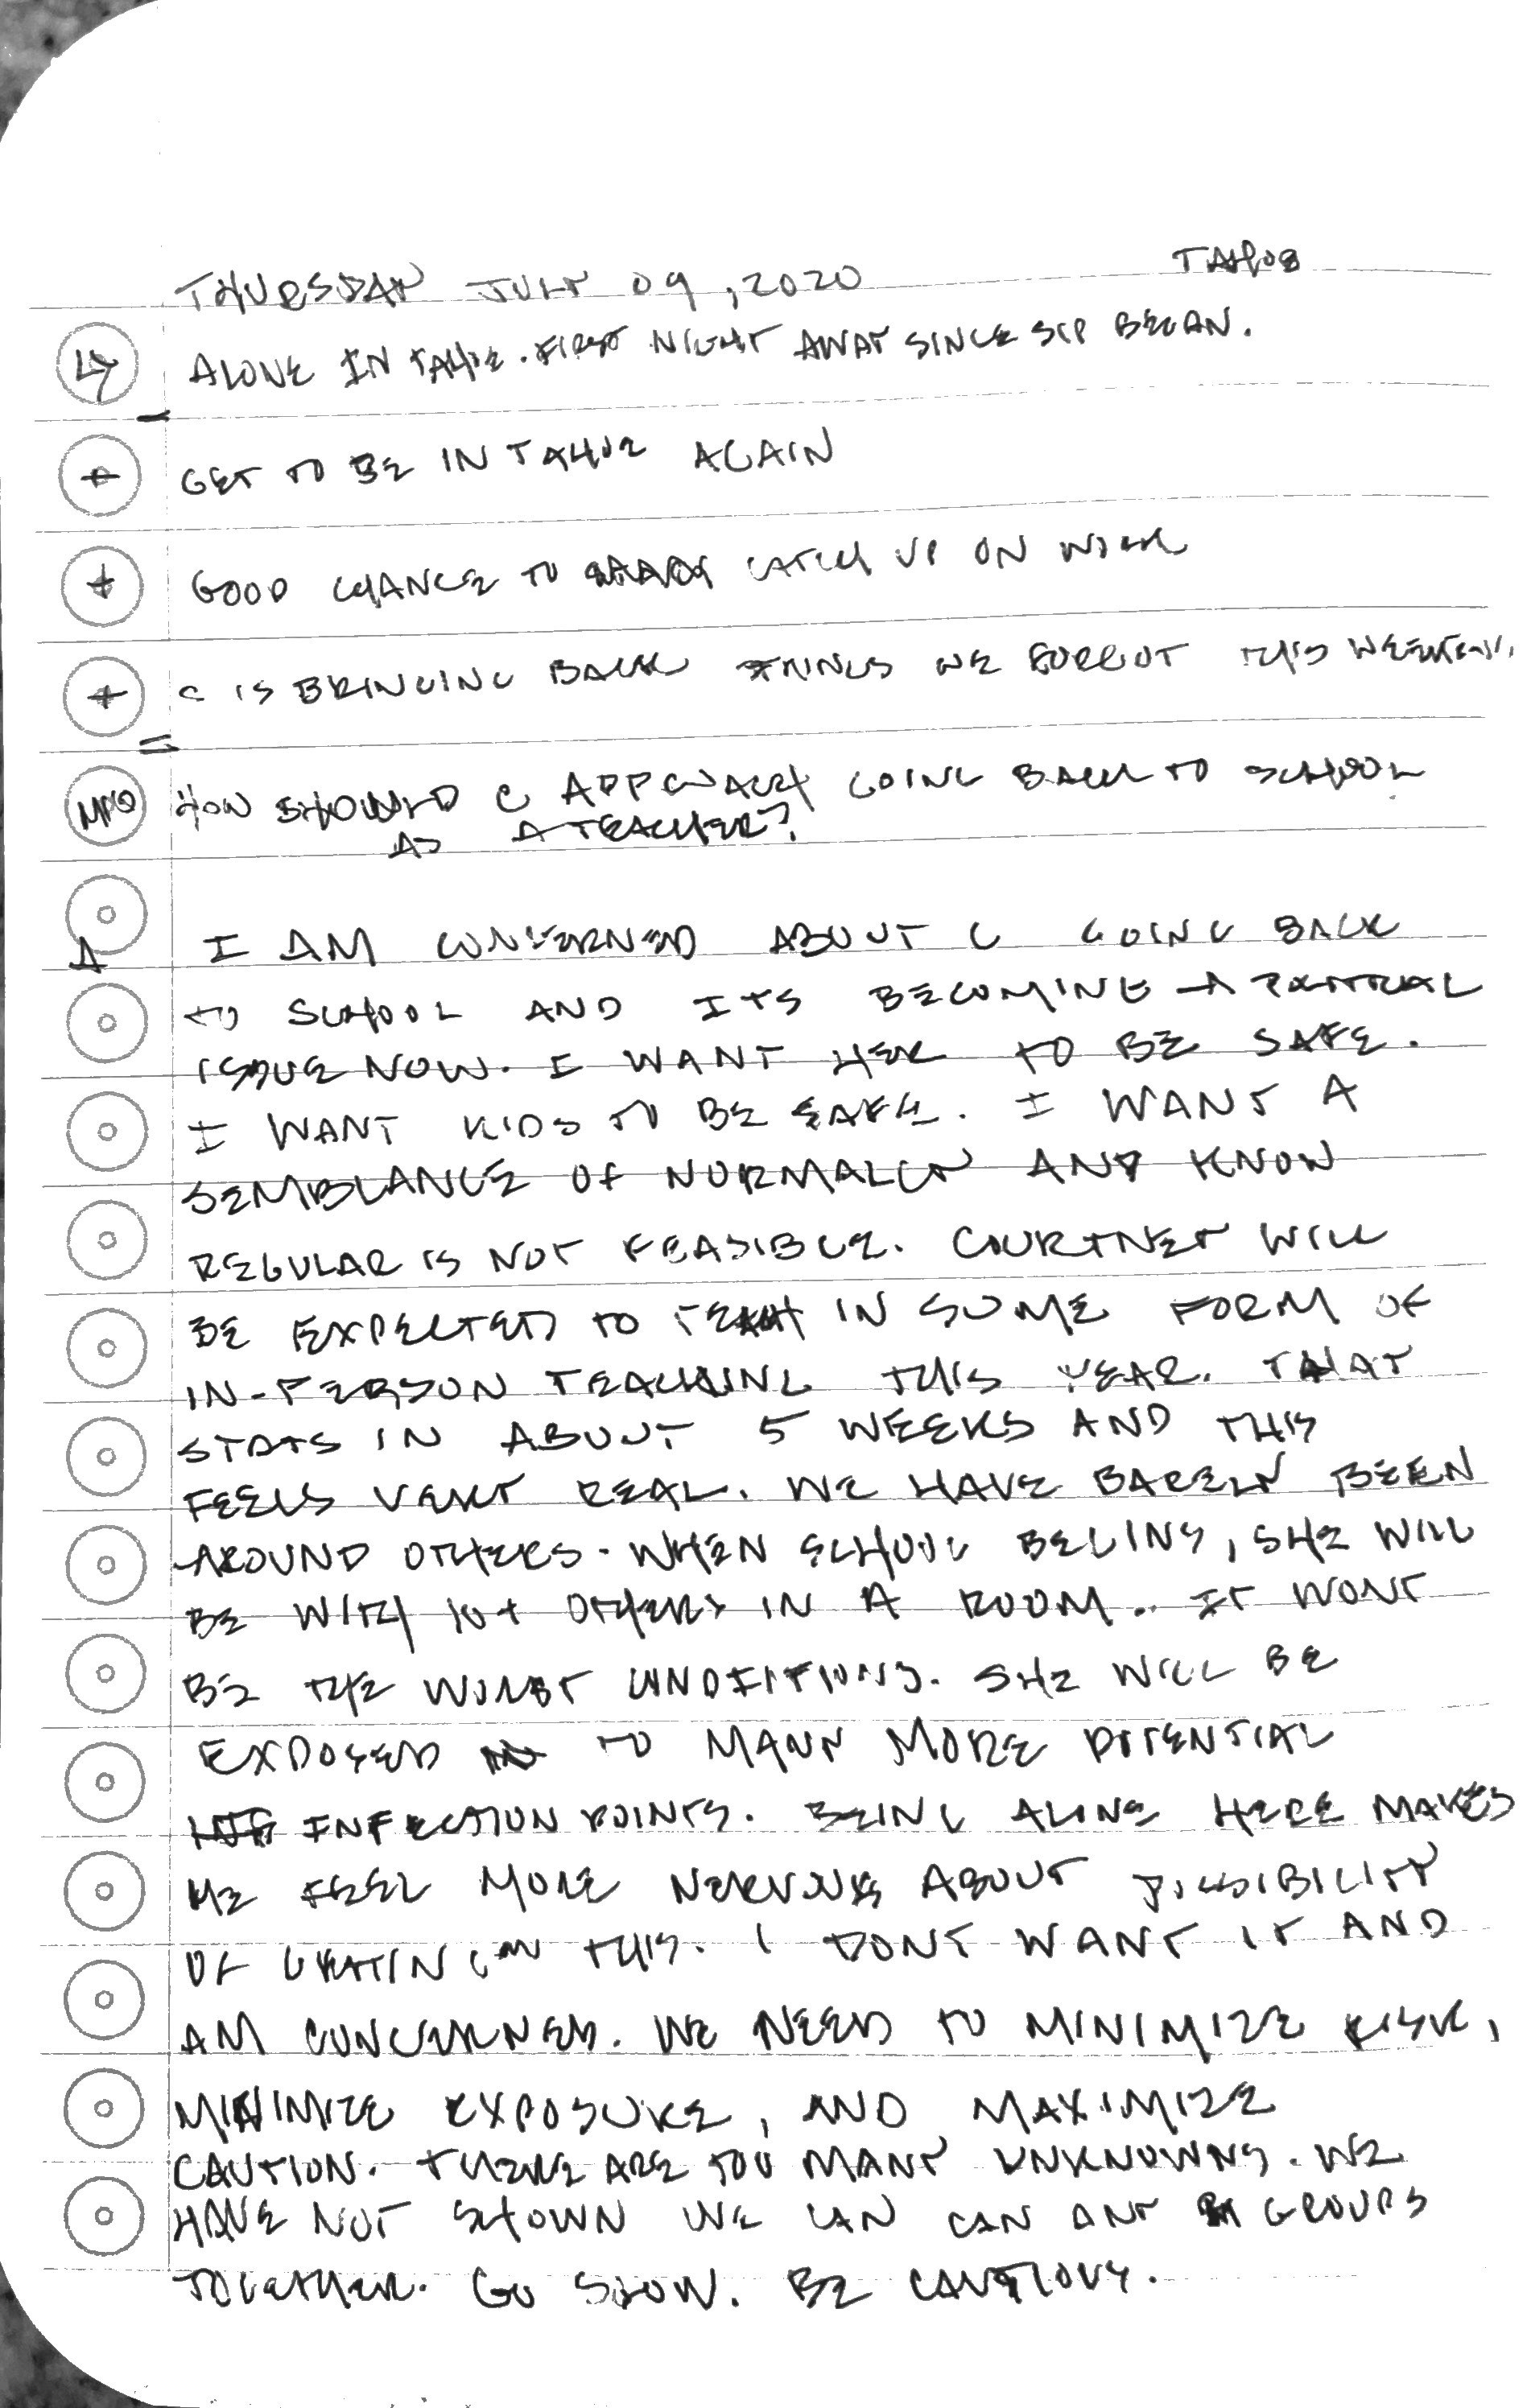 THURSDAY JULY 09, 2020 TAHOE
LY ALONE IN TAHOE. FIRST NIGHT AWAY SINCE SIP BEGAN.
+ GET TO BE IN TAHOE AGAIN
+ GOOD CHANCE TO CATCH UP ON WORK
+ C IS BRINGING BACK THINGS WE FORGOT THIS WEEKEND.
HOW SHOULD C APPROACH GOING BACK TO SCHOOL
AS A TEACHER?
A I AM CONCERNED ABOUT C GOING BACK
TO SCHOOL AND ITS BECOMING A POLITICAL
ISSUE NOW. I WANT HER TO BE SAFE.
I WANT KIDS TO BE SAFE. I WANT A
SEMBLANCE OF NORMALCY AND KNOW
REGULAR IS NOT FEASIBLE. COURTNEY WILL
BE EXPECTED TO TEACH IN SOME FORM OF
IN-PERSON TEACHING THIS YEAR. THAT
STATS IN ABOUT 5 WEEKS AND THIS
FEELS VERY REAL. WE HAVE BARELY BEEN
AROUND OTHERS. WHEN SCHOOL BEGINS, SHE WILL
BE WITH 10+ OTHERS IN A ROOM.. IT WONT
BE THE WORST CONDITIONS. SHE WILL BE
EXPOSED TO MANY MORE POTENTIAL
INFECTION POINTS. BEING ALONE HERE MAKES
ME FEEL MORE NERVOUS ABOUT POSSIBILITY
OF GETTING THIS. I DONT WANT IT AND
AM CONCERNED. WE NEED TO MINIMIZE RISK,
MINIMIZE EXPOSURE, AND MAXIMIZE
CAUTION. THERE ARE TOO MANY UNKNOWNS. WE
HAVE NOT SHOWN WE CAN CAN ANY GROUPS
TOGETHER. GO SLOW. BE CAUTIOUS.